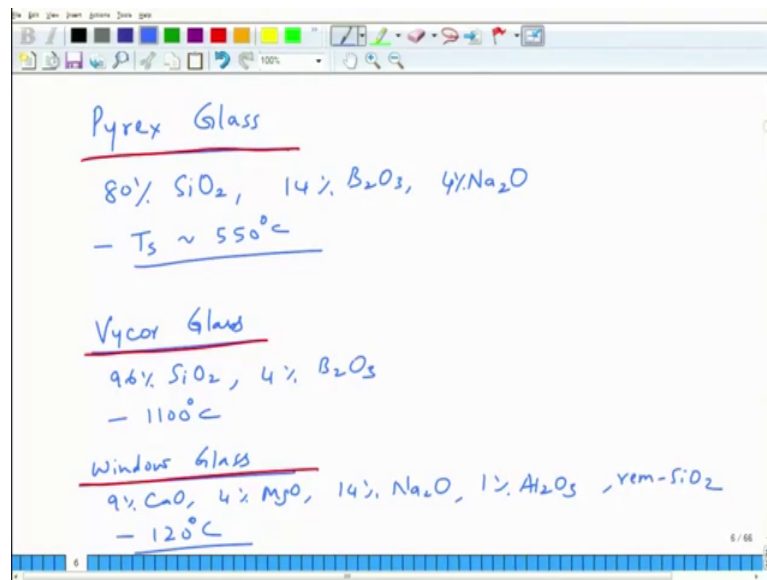 File Edit View Insert Actions Tools Help
B I
100%
Pyrex Glass
80% SiO₂, 14% B₂O₃, 4% Na₂O
- Ts ~ 550°C
Vycor Glass
96% SiO₂, 4% B₂O₃
- 1100°C
Window Glass
9% CaO, 4% MgO, 14% Na₂O, 1% Al₂O₃, rem-SiO₂
- 120°C
6 / 66
6